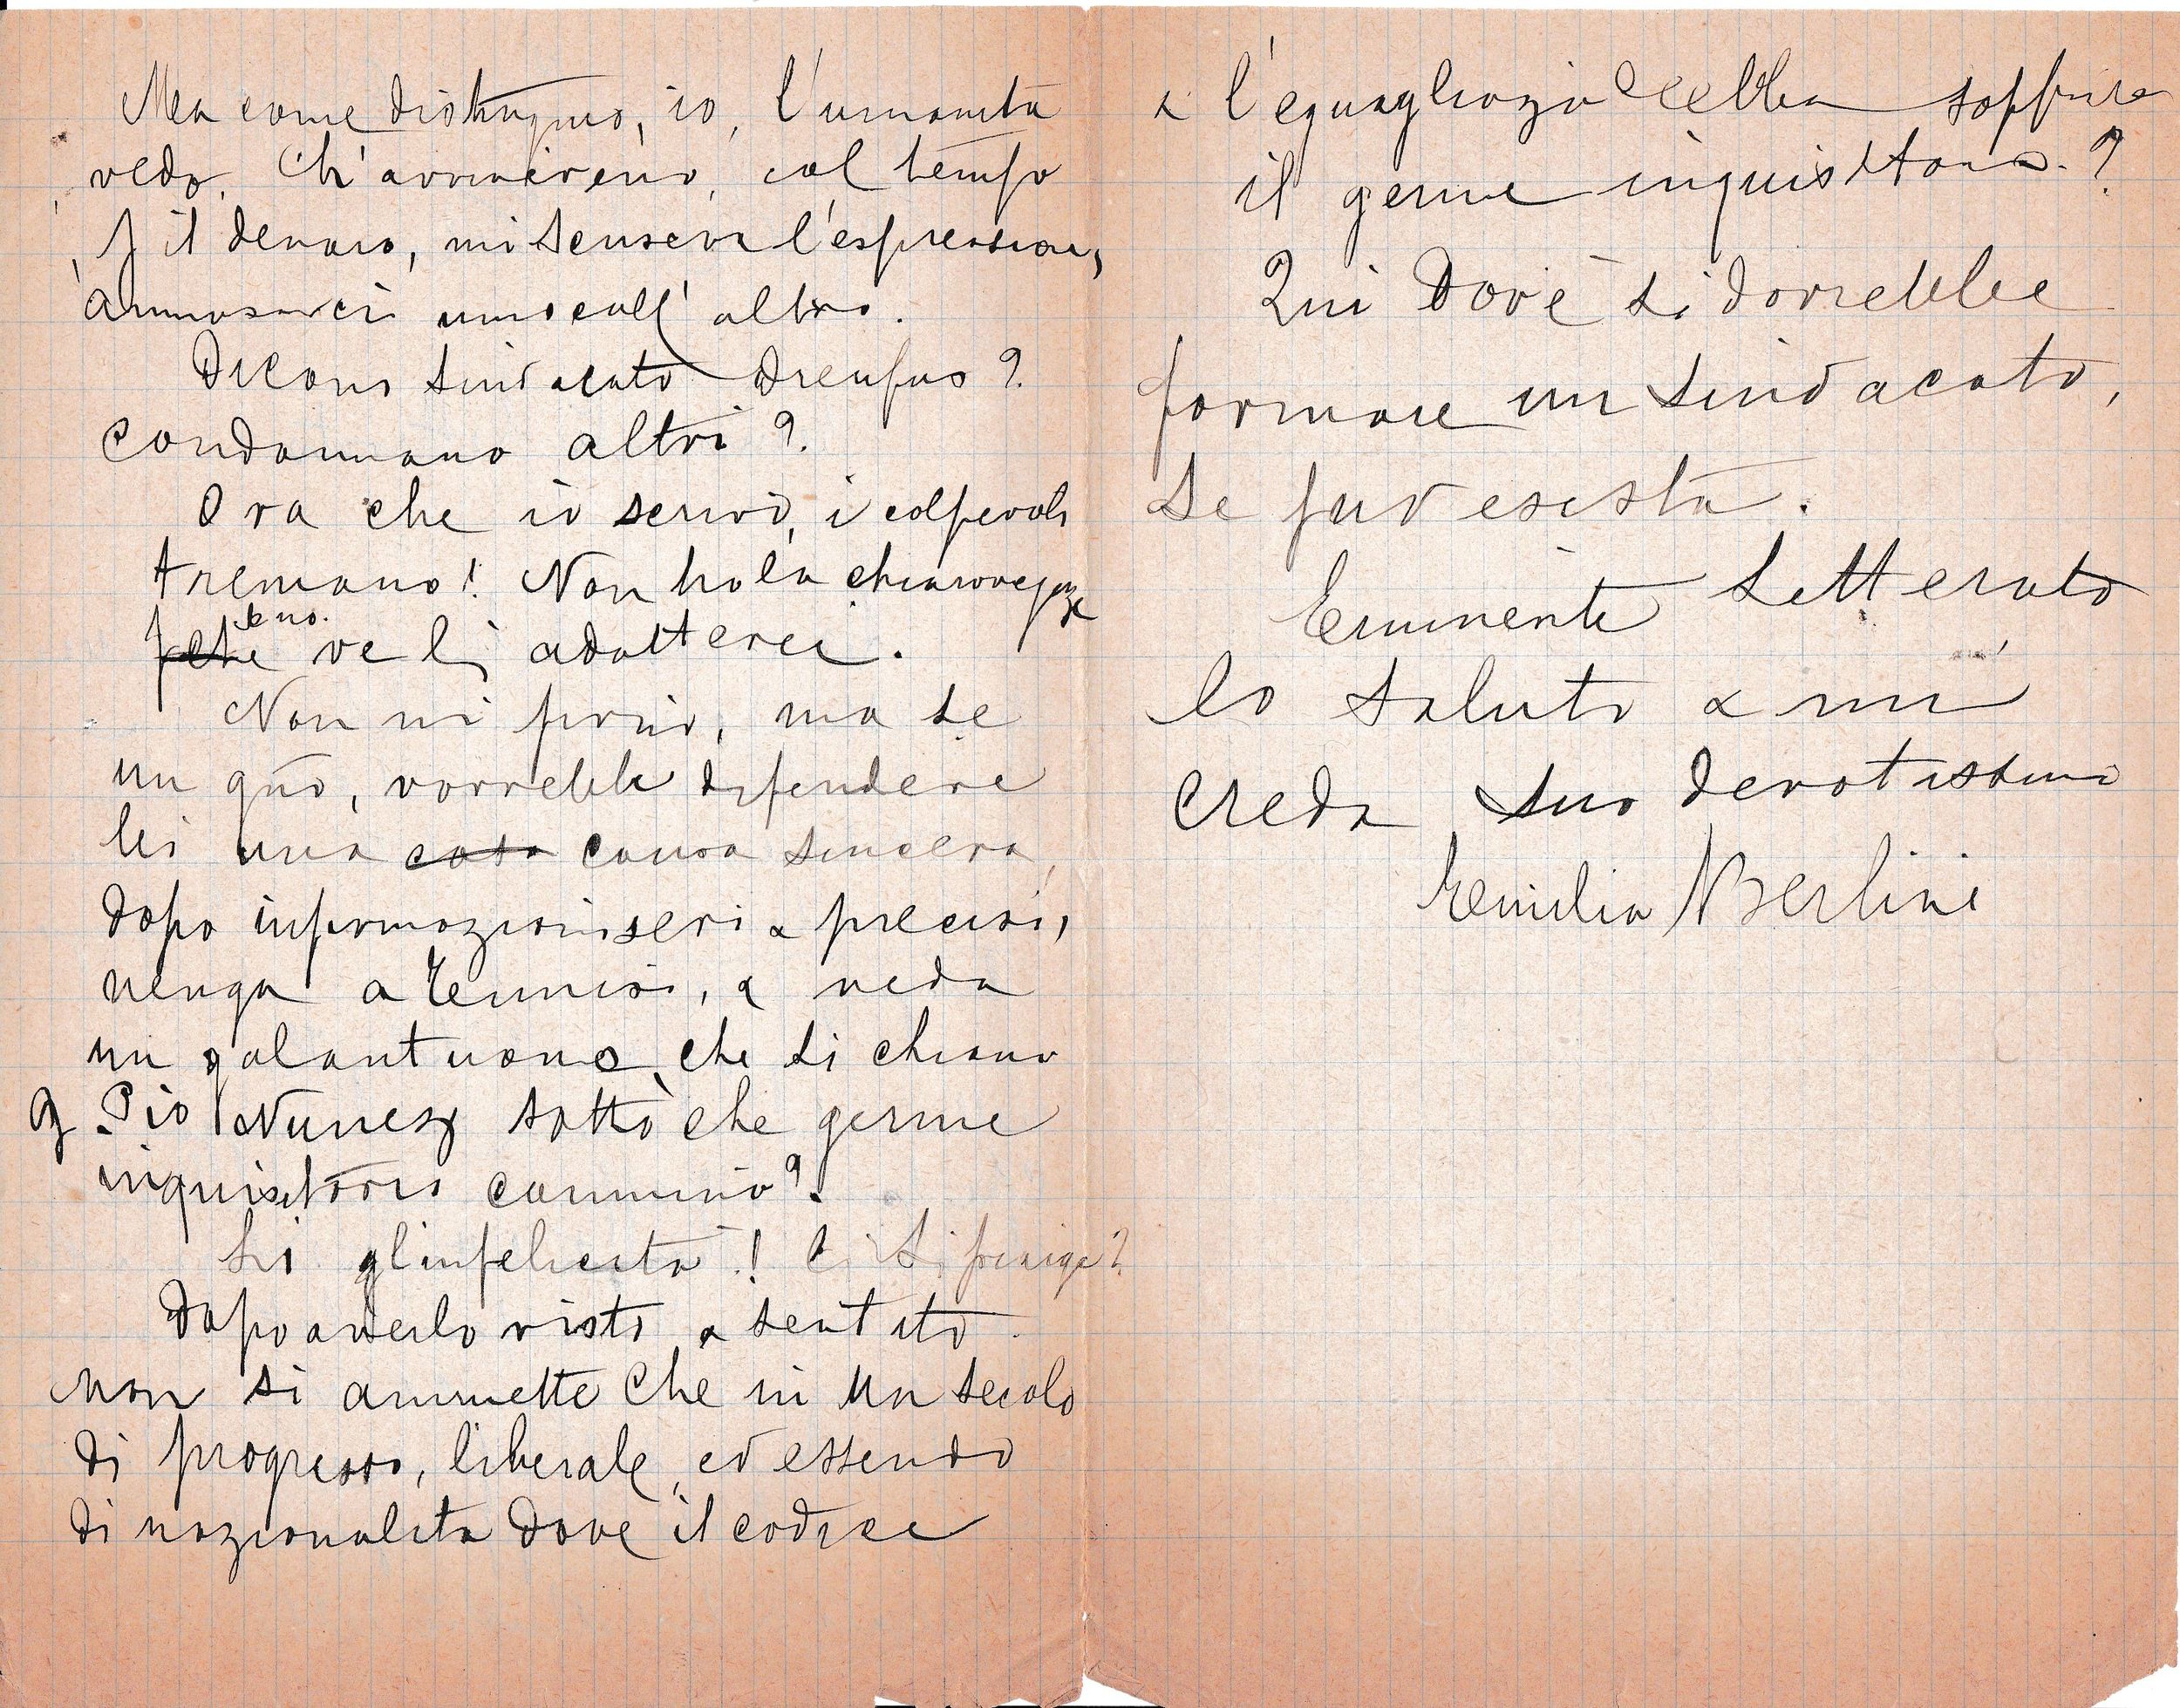 Ma come distinguo, io, l'umanità
vedo, Ch'arriverenno, col tempo
il denaro, mi scuserà l'espression,
uno coll' altro.
Dicono sindacato Dreufus?
Condannano altri?
Ora che io scrivo, i colpevoli
tremano! Non ho la chiaroveggenza
seno. ve li adatterei.
Non mi firmo, ma se
un gño, vorrebbe difendere
lei una cosa causa sincera,
dopo informazioni seri e precisi,
venga a Tennisi, e veda
un galantuomo, che si chiama
G Pio Nunez sotto che germe
inquisitorio cammino?
Si gl'infelicita!
Dopo averlo visto e sentito
non si ammette Che in un secolo
di progresso, liberale, ed essendo
di nazionalita dove il codice
e l'eguagliazo debba soffrire
il germe inquisitorio?
Qui Dove si dovrebbe
formare un sindacato,
se pur esista.
Eminente Letterato
lo saluto e mi
creda suo devotissima
Emilia Berlini